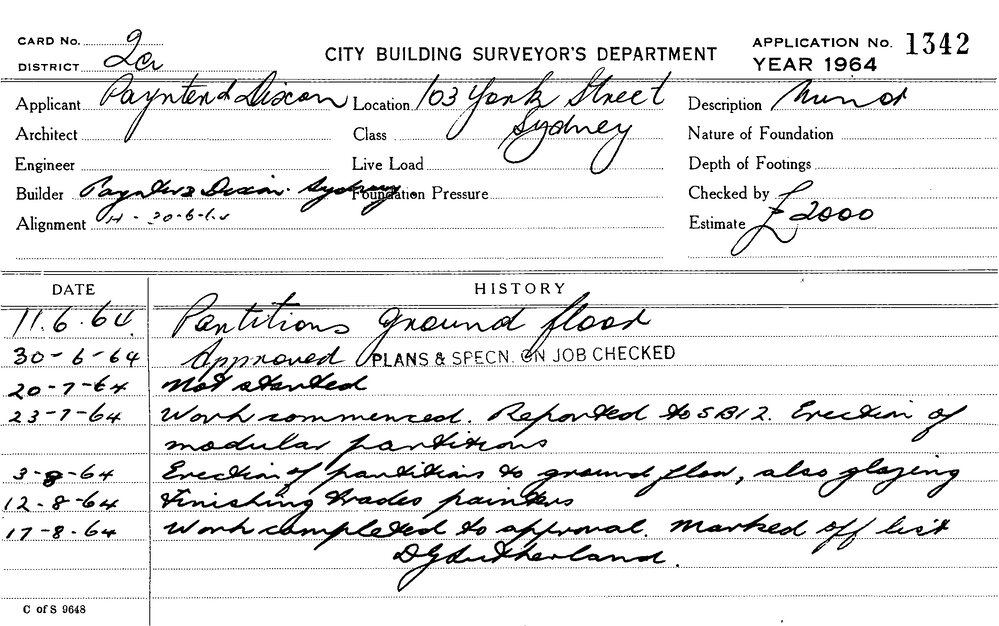 CARD No. 2a
DISTRICT
CITY BUILDING SURVEYOR'S DEPARTMENT
APPLICATION No. 1342
YEAR 1964
Applicant Paynter & Dixon Location 103 York Street Description Minor
Architect Class Sydney Nature of Foundation
Engineer Live Load Depth of Footings
Builder Paynter & Dixon. Sydney. Foundation Pressure Checked by
Alignment H - 30-6-64 Estimate £2000
DATE HISTORY
11.6.64 Partitions ground floor
30-6-64 Approved PLANS & SPECN. ON JOB CHECKED
20-7-64 Not started
23-7-64 Work commenced. Reported to SB12. Erection of
modular partitions
3-8-64 Erection of partitions to ground floor, also glazing
12-8-64 Finishing trades painters
17-8-64 Work completed to approval. Marked off list
DG Sutherland.
C of S 9648